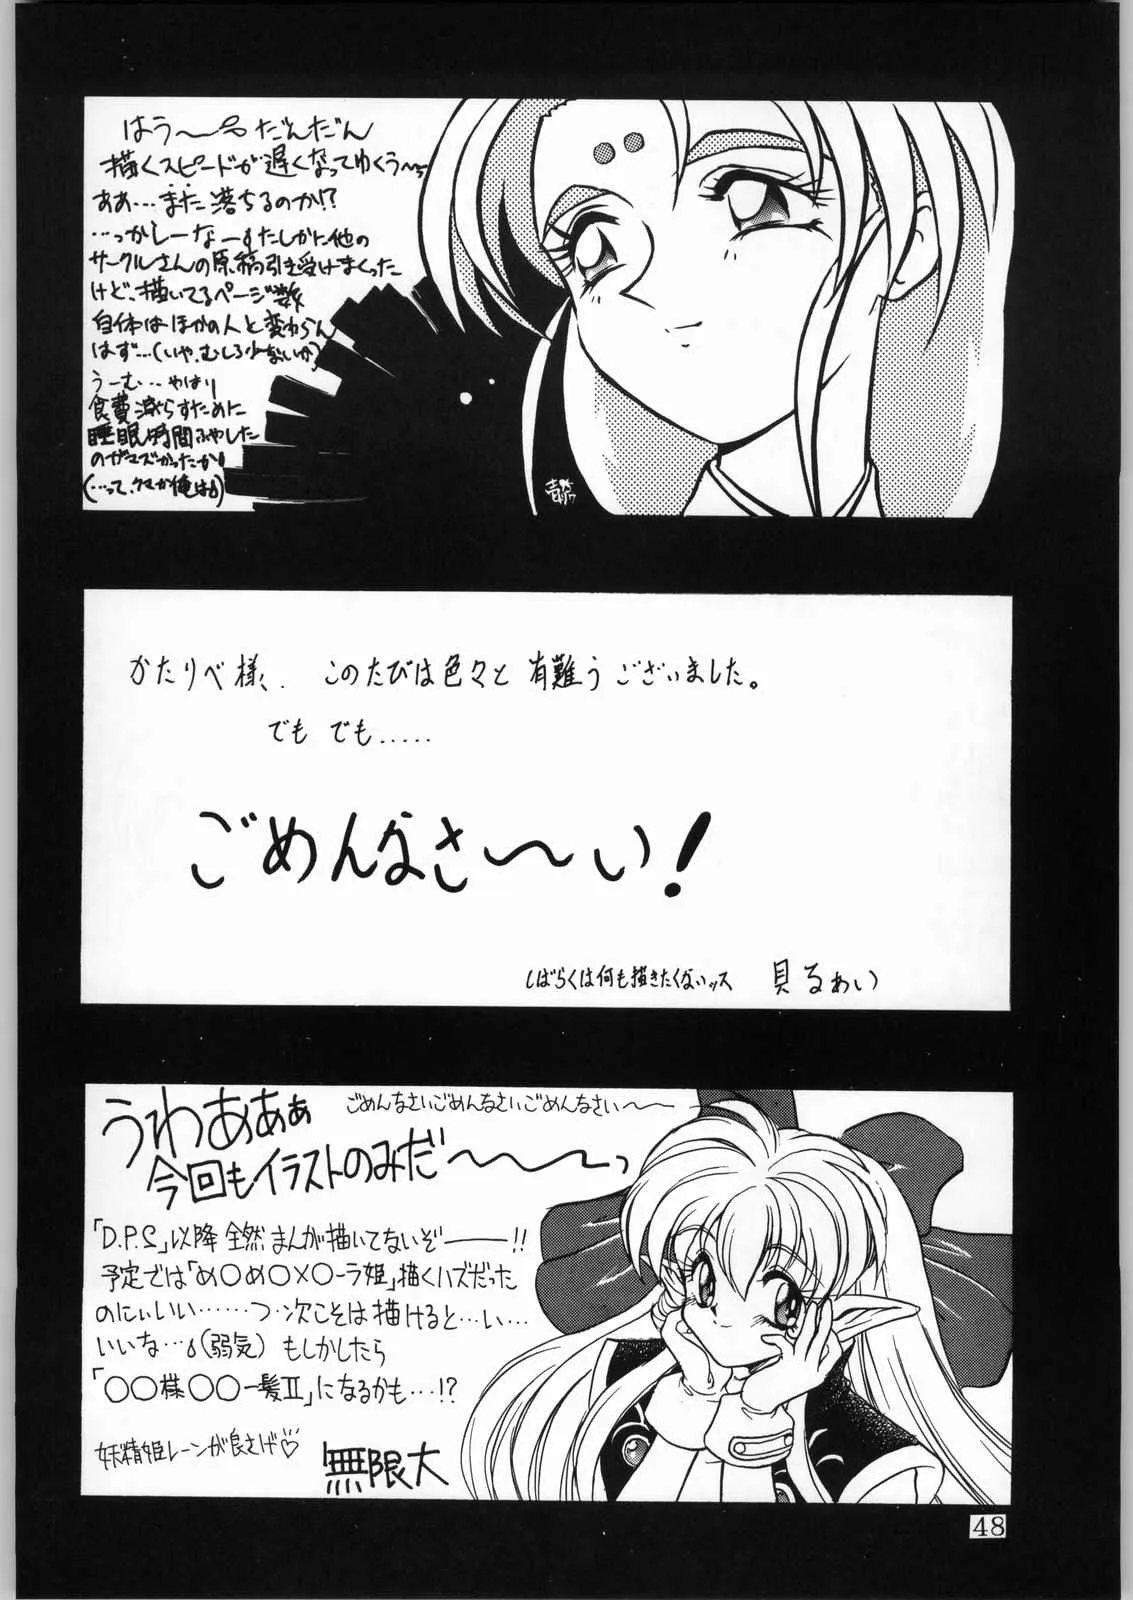 はう〜 だんだん
描くスピードが遅くなってゆくぅ〜
ああ…また落ちるのか!?
…っかしーなーすたしかに他の
サークルさんの原稿引き受けまくった
けど、描いてるページ数
自体はほかの人と変わらん
はず…(いや、むしろ少ないか)
うーむ…やはり
食費減らすために
睡眠時間ふやした
のがマズかったか
(…って、クマか俺は)
かたりべ様、このたびは色々と有難うございました。
でも でも.....
ごめんなさ〜い!
しばらくは何も描きたくないッス 貝るあい
うわあぁぁ
ごめんなさいごめんなさいごめんなさい〜
今回もイラストのみだ〜〜っ
「D.P.S」以降全然まんが描いてないぞ――!!
予定では「め○め○×○ーラ姫」描くハズだった
のにぃいい……つ・次こそは描けると…い…
いいな…(弱気) もしかしたら
「○○様○○一髪Ⅱ」になるかも…!?
妖精姫レーンが良さげ♡
無限大
48